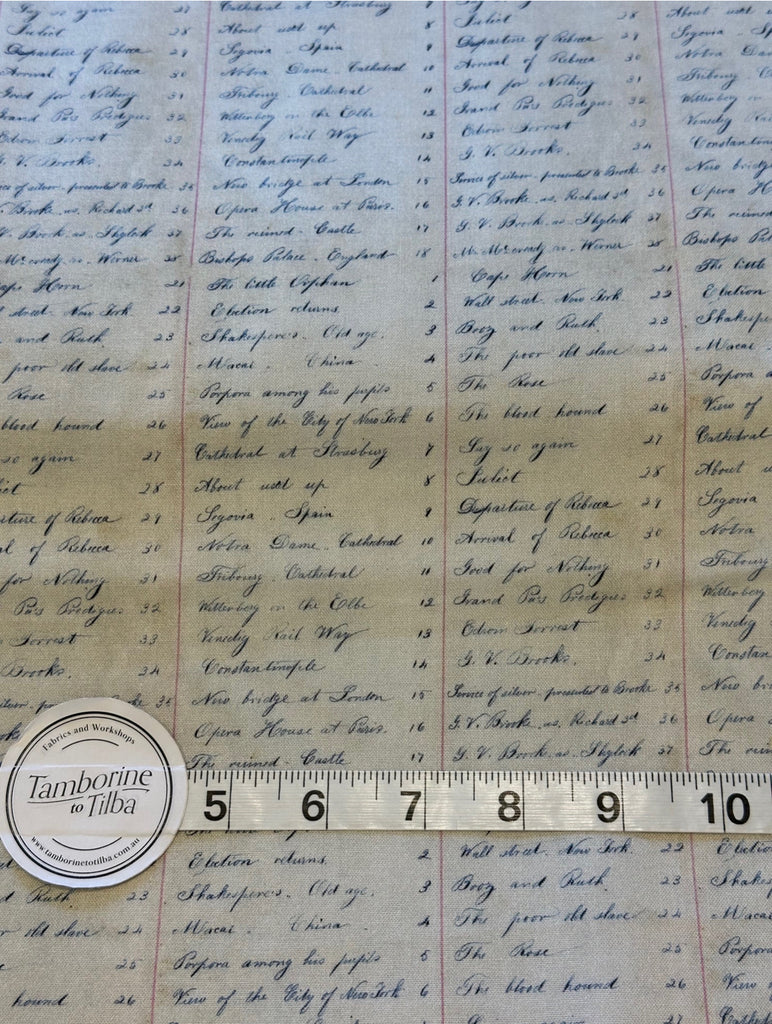 Say so again 27
Juliet 28
Departure of Rebecca 29
Arrival of Rebecca 30
Good for Nothing 31
Grand Pa's Prodigies 32
Edwin Forrest 33
G. V. Brooks. 34
Service of silver. presented to Brooke 35
V. Brooke. as. Richard 3d 36
V. Brook. as. Shylock 37
Mc.cready as. Werner 28
Cape Horn 21
street. New York 22
and Ruth. 23
poor old slave 24
Rose 25
blood hound 26
so again 27
28
of Rebecca 29
of Rebecca 30
for Nothing 31
Pa's Prodigies 32
Forrest 33
Brooks. 34
35
Cathedral at Strasburg 7
About used up 8
Segovia .. Spain 9
Notra Dame .. Cathedral 10
Fribourg . Cathedral 11
Wittenberg on the Elbe 12
Venedig Rail Way 13
Constantinople 14
New bridge at London 15
Opera House at Paris. 16
The ruined - Castle 17
Bishops Palace . England 18
The little Orphan 1
Election returns. 2
Shakespere's . Old age. 3
Macai . China . 4
Porpora among his pupils 5
View of the City of New York 6
Cathedral at Strasburg 7
About used up 8
Segovia .. Spain 9
Notra Dame .. Cathedral 10
Fribourg . Cathedral 11
Wittenberg on the Elbe 12
Venedig Rail Way 13
Constantinople 14
New bridge at London 15
Opera House at Paris. 16
The ruined - Castle 17
28
Departure of Rebecca 29
Arrival of Rebecca 30
Good for Nothing 31
Grand Pa's Prodigies 32
Edwin Forrest 33
G. V. Brooks. 34
Service of silver. presented to Brooke 35
G. V. Brooke. as. Richard 3d 36
G. V. Brook. as. Shylock 37
Mr Mc.cready as. Werner 28
Cape Horn 21
Wall street. New York 22
Booz and Ruth. 23
The poor old slave 24
The Rose 25
The blood hound 26
Say so again 27
Juliet 28
Departure of Rebecca 29
Arrival of Rebecca 30
Good for Nothing 31
Grand Pa's Prodigies 32
Edwin Forrest 33
G. V. Brooks. 34
Service of silver. presented to Brooke 35
G. V. Brooke. as. Richard 3d 36
G. V. Brook. as. Shylock 37
About
Segovia
Notra Dam
Fribourg
Wittenberg on
Venedig Rail
Constantin
New bridg
Opera H
The ruined
Bishops Pala
The little
Election
Shakespe
Macai .
Porpora a
View of
Cathedral
About u
Segovia
Notra
Fribourg
Wittenberg
Venedig
Constan
New b
Opera
The ruin
Fabrics and Workshops
Tamborine
to Tilba
www.tamborinetotilba.com.au
5 6 7 8 9 10
23
old slave 24
25
hound 26
Election returns. 2
Shakespere's . Old age. 3
Macai . China . 4
Porpora among his pupils 5
View of the City of New York 6
Wall street. New York. 22
Booz and Ruth. 23
The poor old slave 24
The Rose 25
The blood hound 26
27
Electio
Shakes
Macai
Porpora
View o